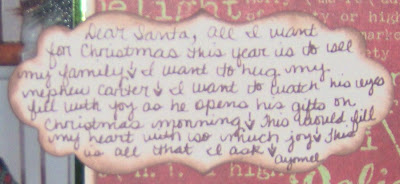 DeLIGHT
Dear Santa, all I want
for Christmas this year is to see
my family I want to hug my
nephew Carter I want to watch his eyes
fill with joy as he opens his gifts on
Christmas morning This would fill
my heart with so much joy This
is all that I ask